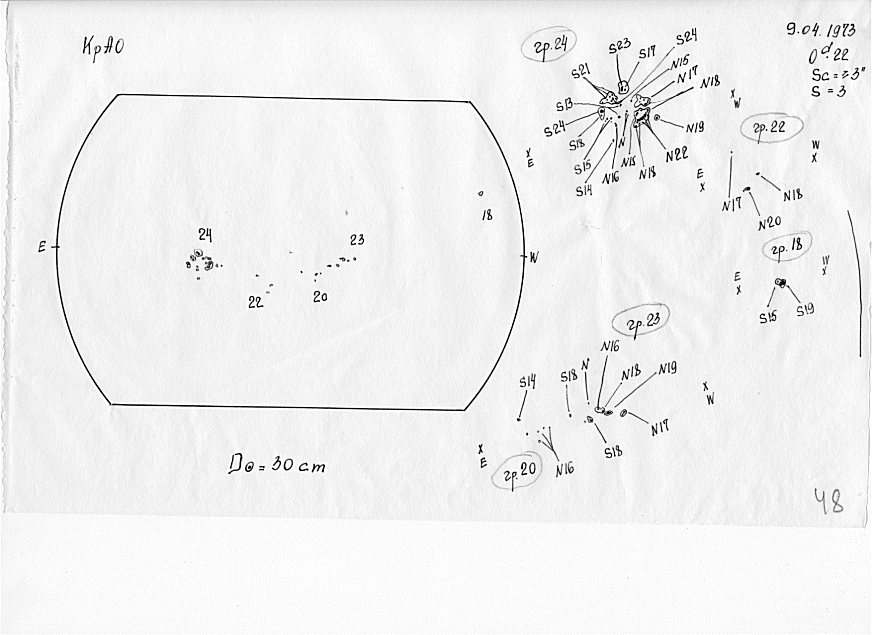 КрАО
9.04.1973
0ᵈ.22
Sc = 3"
S = 3
гр.24
S23
S17
S24
S21
N15
N17
N18
S13
S24
S18
N19
S15
S14
N16
N
N15
N18
N22
X
E
X
W
гр.22
W
X
E
X
N17
N18
N20
18
E
24
23
W
22
20
гр.18
E
X
W
X
S15
S19
гр.23
N16
N
N18
N19
S18
S14
X
W
N17
S18
X
E
гр.20
N16
D⊙ = 30 cm
48